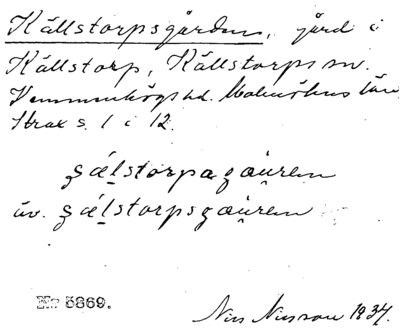 Källstorpsgården, gård i
Källstorp, Källstorps sn.
Vemmenhögs hd. Malmöhus län
Strax s. 1 i 12.
şǽḷstorpagau̯ren
äv. şǽḷstorpsgau̯ren
No 5869.
Nils Nilsson 1934.